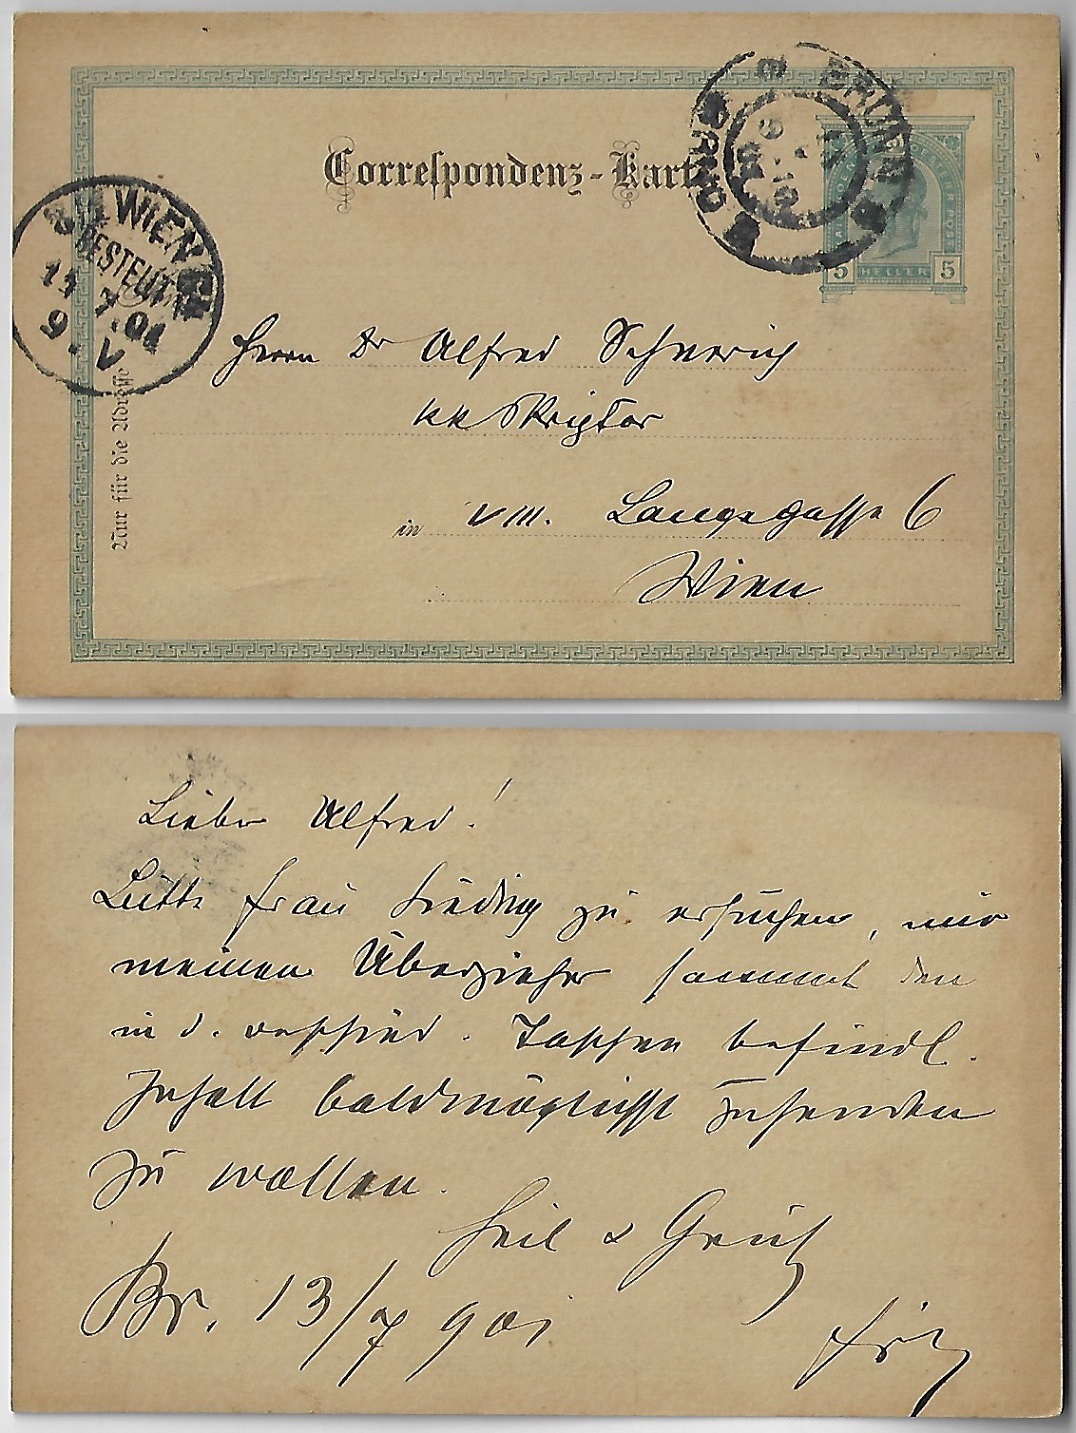 Correspondenz-Karte
BRÜNN
BRNO
5 HELLER 5
WIEN
BESTELLT
9. V
Nur für die Adresse
Herrn Dr Alfred Schnerich
kk Skriptor
in VIII. Langegasse 6
Wien
Lieber Alfred!
Bitte Frau zu ersuchen, mir
meinen Überzieher sammt den
in d. verschied. Taschen befindl.
Inhalt baldmöglichst zusenden
zu wollen.
Heil & Gruß
Br. 13/7 901
Fritz